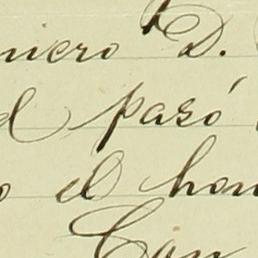 niero D.
d pasó
o el hon
Con